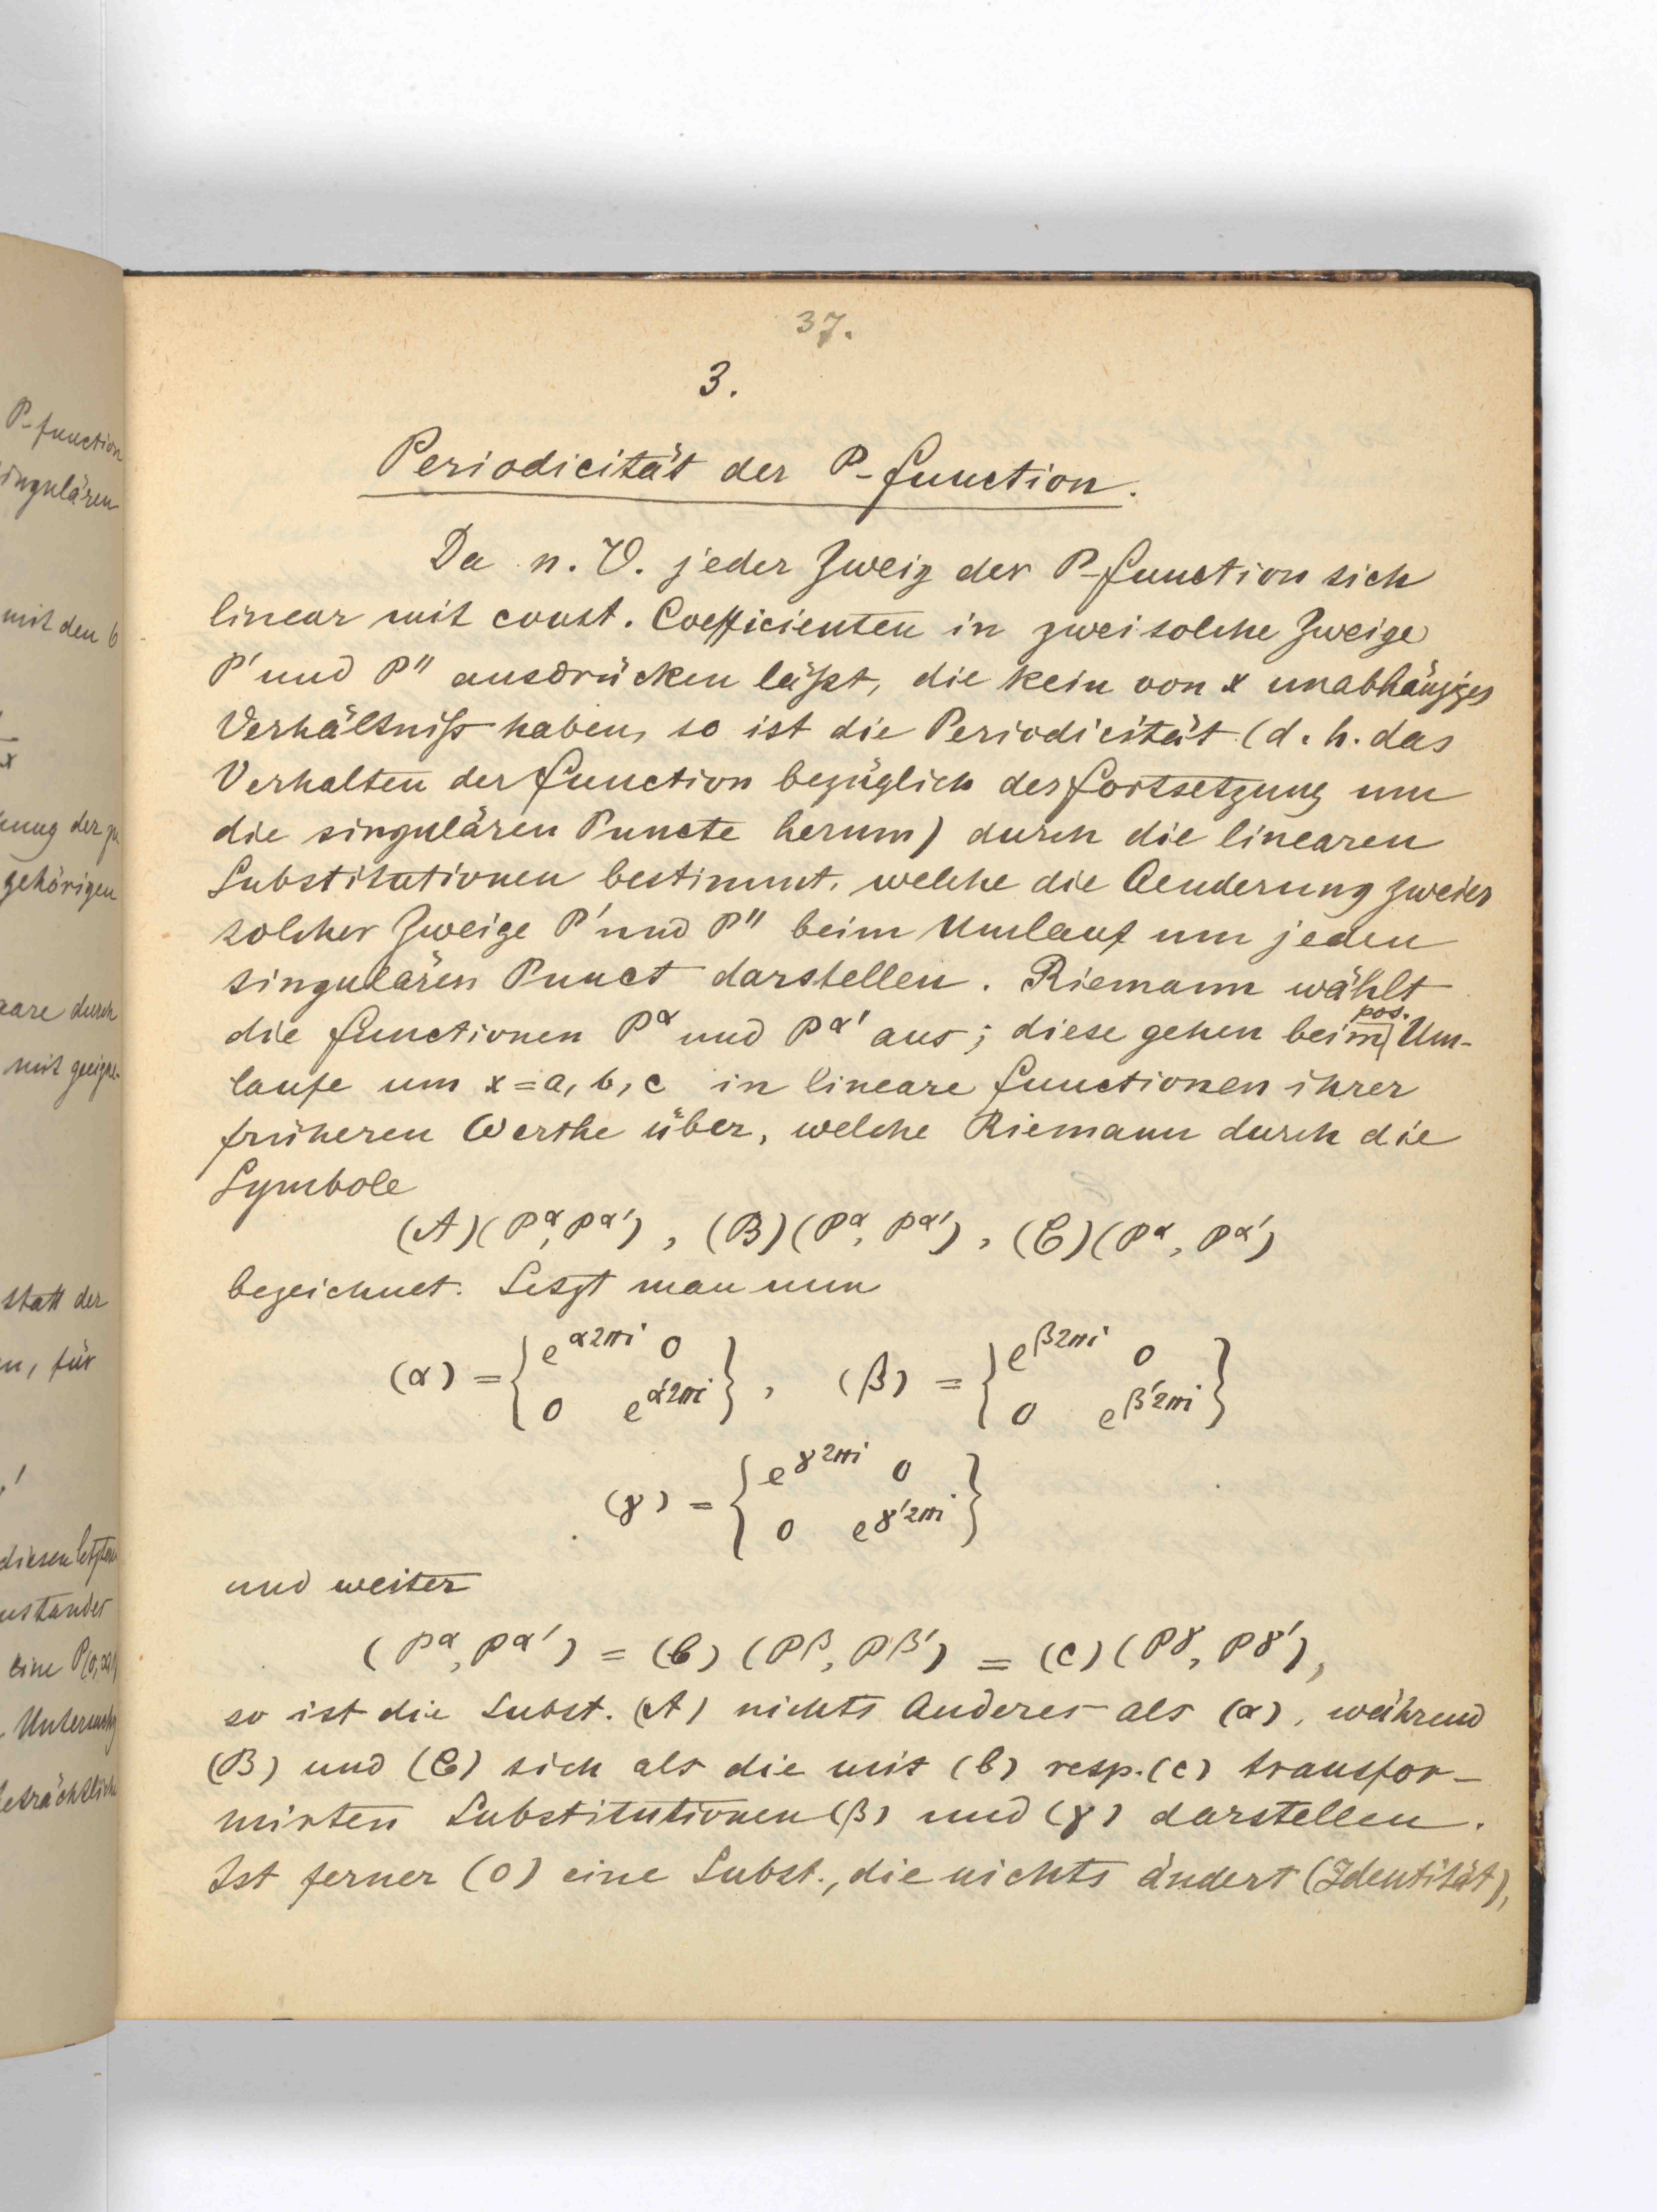 P-function
singulären
mit den 6
x
gehörigen
durch
statt der
für
diesen letzten
eine
37.
3.
Periodicität der P-function.
Da n. V. jeder Zweig der P-function sich
linear mit const. Coefficienten in zwei solche Zweige
P′ und P″ ausdrücken läßt, die kein von x unabhängiges
Verhältniß haben, so ist die Periodicität (d. h. das
Verhalten der function bezüglich der fortsetzung um
die singulären Puncte herum) durch die linearen
Substitutionen bestimmt, welche die Aenderung zweier
solcher Zweige P′ und P″ beim Umlauf um jeden
singulären Punct darstellen. Riemann wählt
die functionen P^α und P^α′ aus; diese gehen beim pos. Um-
laufe um x = a, b, c in lineare functionen ihrer
früheren Werthe über, welche Riemann durch die
Symbole
(A)(P^α, P^α′), (B)(P^α, P^α′), (C)(P^α, P^α′)
bezeichnet. Setzt man nun
(α) = { e^α2πi 0 }, (β) = { e^β2πi 0 }
{ 0 e^α′2πi } { 0 e^β′2πi }
(γ) = { e^γ2πi 0 }
{ 0 e^γ′2πi }
und weiter
(P^α, P^α′) = (b) (P^β, P^β′) = (c) (P^γ, P^γ′),
so ist die Subst. (A) nichts Anderes als (α), während
(B) und (C) sich als die mit (b) resp. (c) transfor-
mirten Substitutionen (β) und (γ) darstellen.
Ist ferner (0) eine Subst., die nichts ändert (Identität),